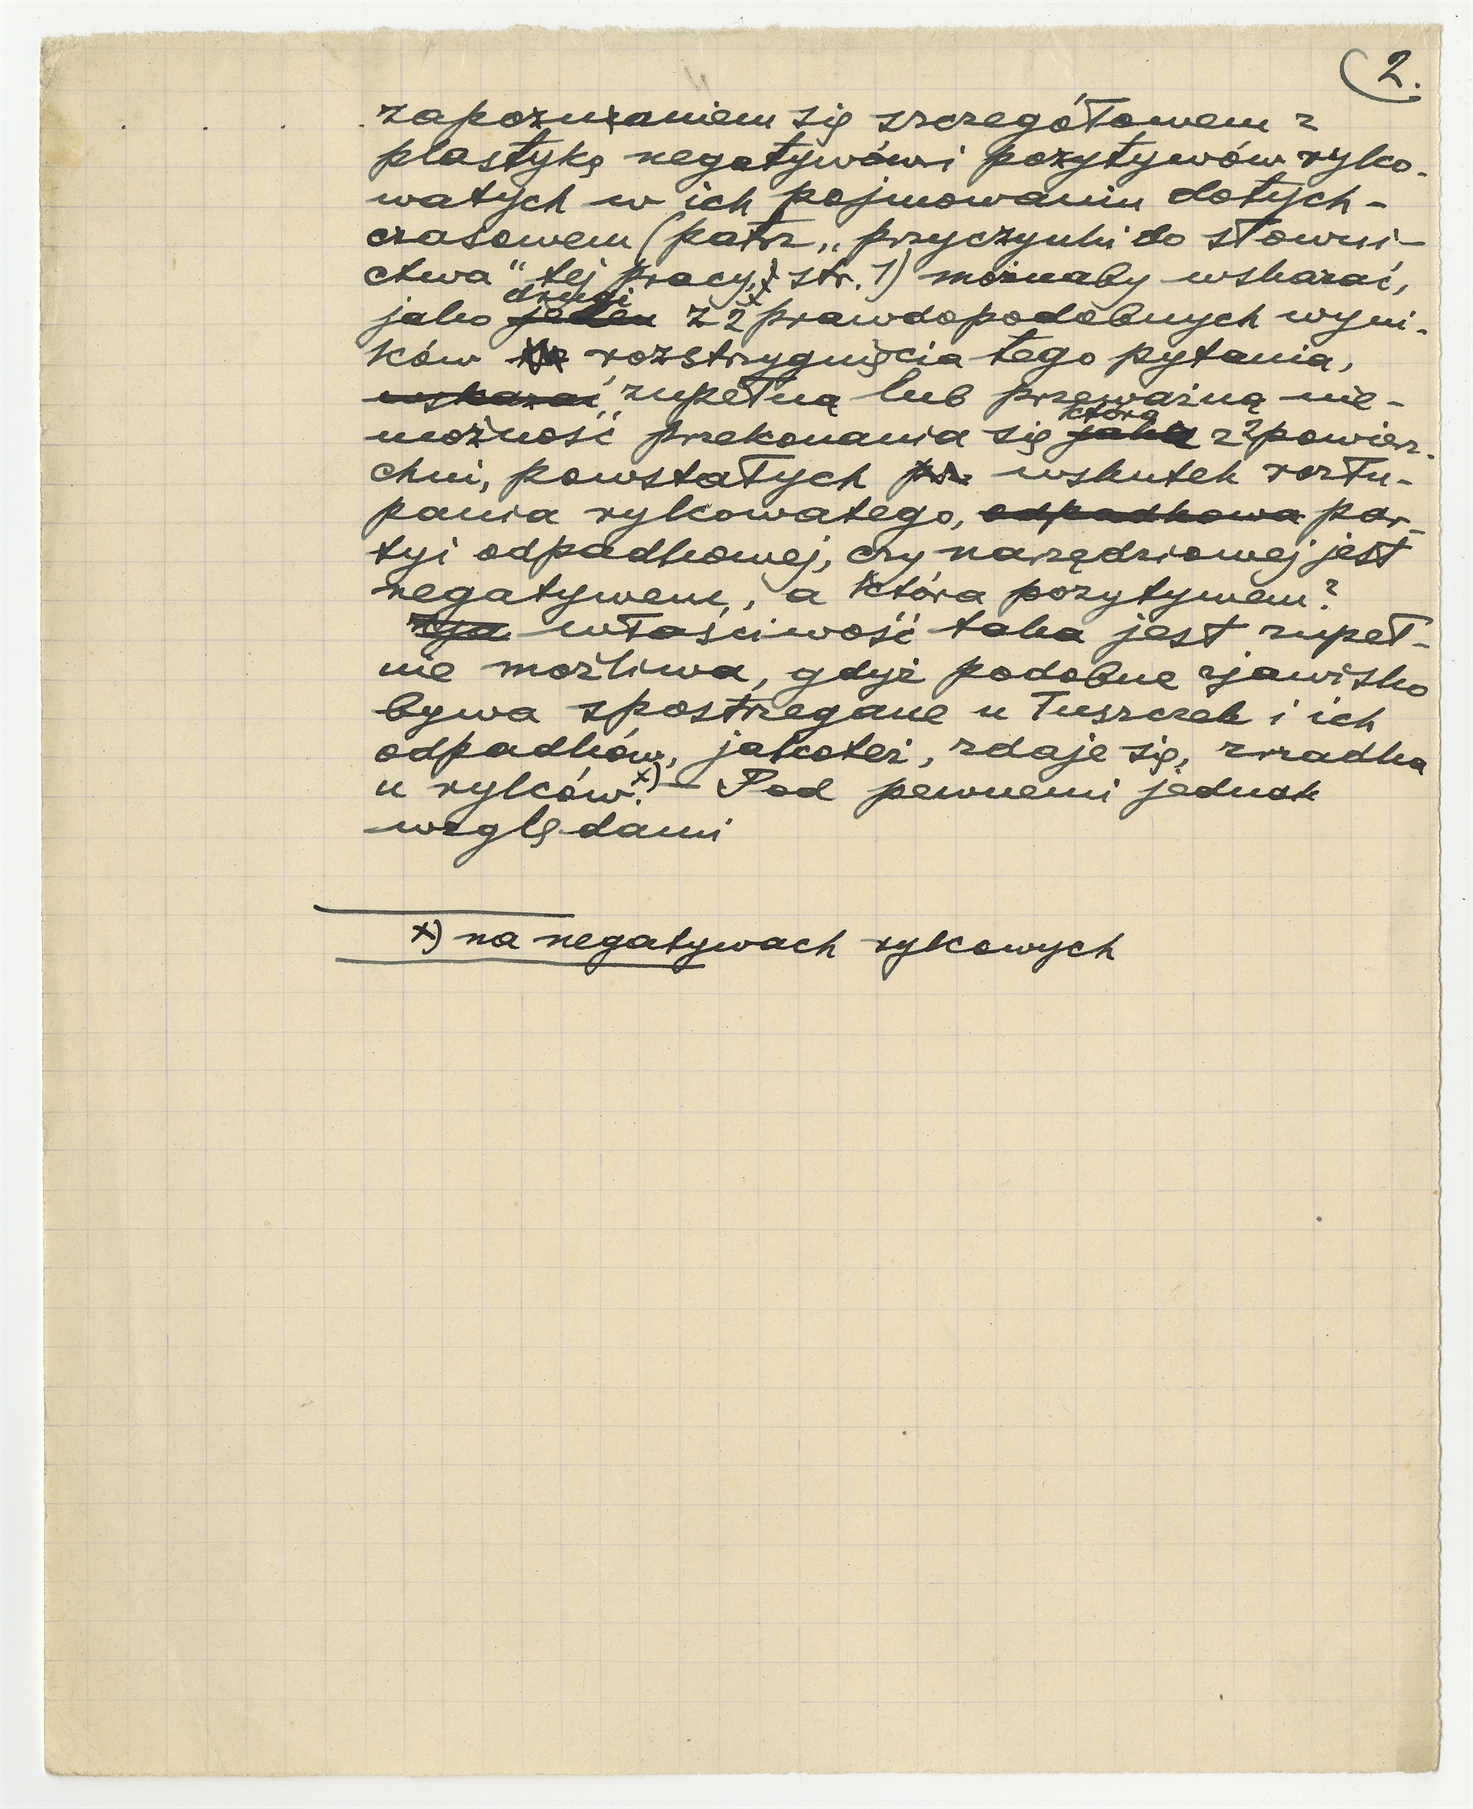 2.
zapoznaniem się szczegółowem z
plastyką negatywów i pozytywów rylco-
watych w ich pojmowaniu dotych-
czasowem (patrz „przyczynki do słowni-
ctwa" tej pracy, str. 1) możnaby wskazać,
drugi
jako jeden z 2 prawdopodobnych wyni-
ków rozstrzygnięcia tego pytania,
wskazać zupełną lub przeważną nie-
która
możność przekonania się jaka z 2 powierz-
chni, powstałych wskutek rozłu-
pania rylcowatego, odpadkowa par-
tyi odpadkowej, czy narzędziowej jest
negatywem, a która pozytywem?
właściwość taka jest zupeł-
nie możliwa, gdyż podobne zjawisko
bywa spostrzegane u łuszczek i ich
odpadków, jakoteż, zdaje się, zrzadka
u rylców.x) — Pod pewnemi jednak
względami
x) na negatywach rylcowych